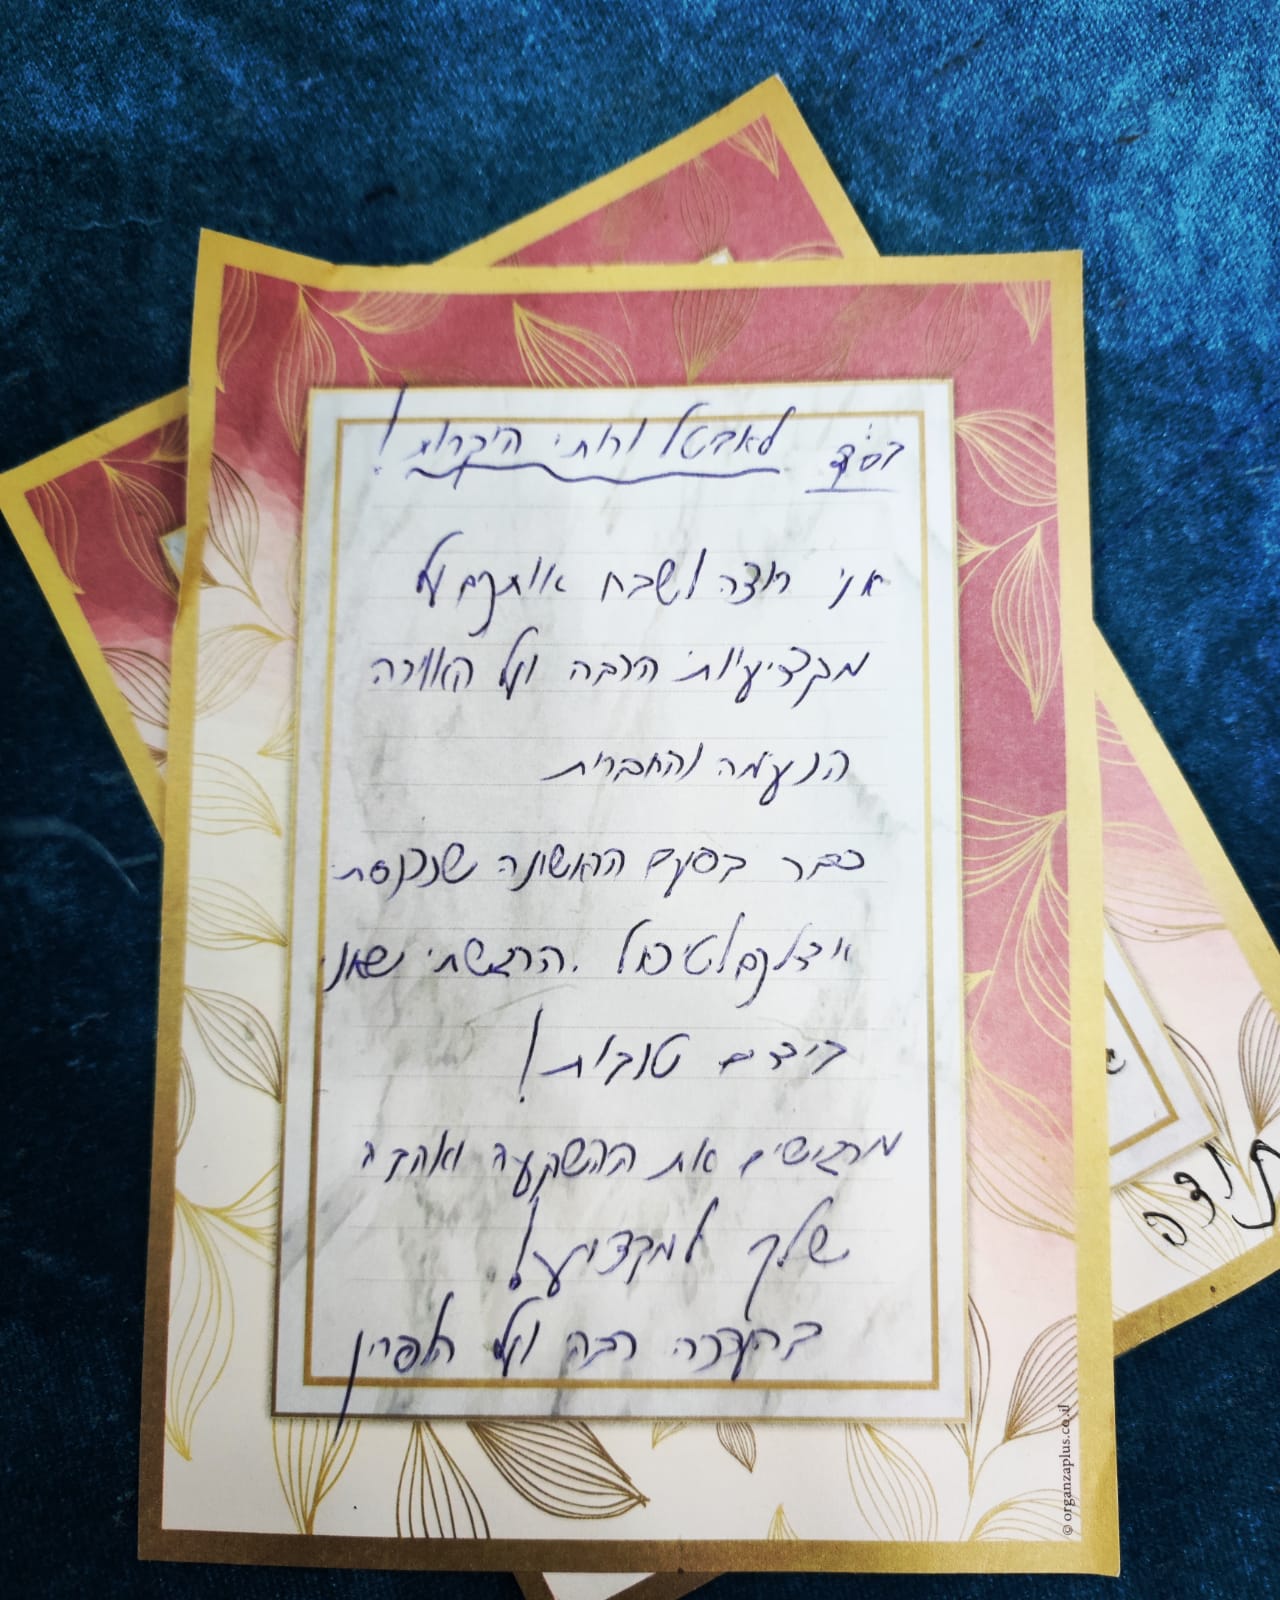 בס"ד
לאביטל ורותי היקרות!
אני רוצה לשבח אותכם על
מקצועיות הרבה ועל האווירה
הנעימה והחברית
כבר בפעם הראשונה שנכנסתי
אצלכם לטיפול. הרגשתי שאני
בידים טובות!
מרגישים את ההשקעה ואהבה
שלך למקצוע!
בהערכה רבה ועל
תודה
© organzaplus.co.il